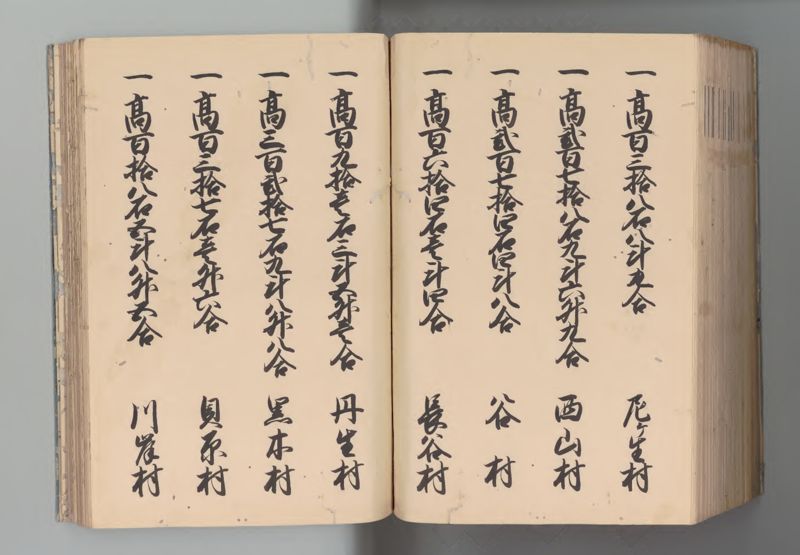 一 高百三拾八石八斗九合 尼ヶ生村
一 高弐百七拾八石九斗六升九合 西山村
一 高弐百七拾四石四斗八合 谷村
一 高百六拾四石壱斗四合 長谷村
一 高百九拾壱石三斗五升壱合 丹生村
一 高三百弐拾七石九斗八升八合 黒木村
一 高百三拾七石壱升六合 貝原村
一 高百拾八石五斗八升五合 川岸村